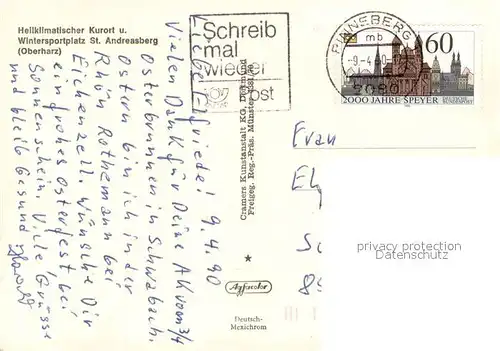 Heilklimatischer Kurort u.
Wintersportplatz St. Andreasberg
(Oberharz)
Schreib
mal
wieder
Post
RENNSBERG
mb
-9-4.90
2080
60
2000 JAHRE SPEYER
9.4.90
Liebe Elfriede!
Vielen Dank für Deine AK vom 3/4
Osterbrunnen in Schwabach.
Ostern bin ich in der
Rhön, Rothemann bei
Eichenzell. Wünsche Dir
ein frohes Osterfest, bei
Sonnenschein. Viele Grüsse
und bleib Gesund
Cramers Kunstanstalt KG, Dortmund
Freigeg. Reg.-Präs. Münster
Agfacolor
Deutsch-
Mexichrom
Frau
privacy protection
Datenschutz